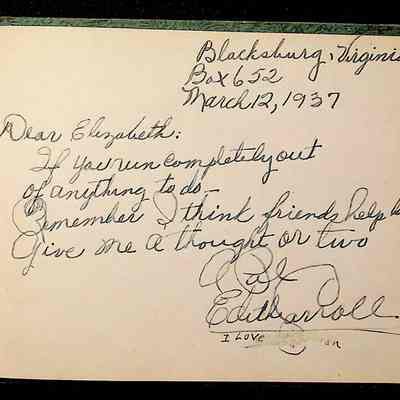 Blacksburg, Virginia
Box 652
March 12, 1937
Dear Elizabeth:
If you run completely out
of anything to do—
Remember I think friends help
Give me a thought or two
A Pal
Edith Carroll
I Love